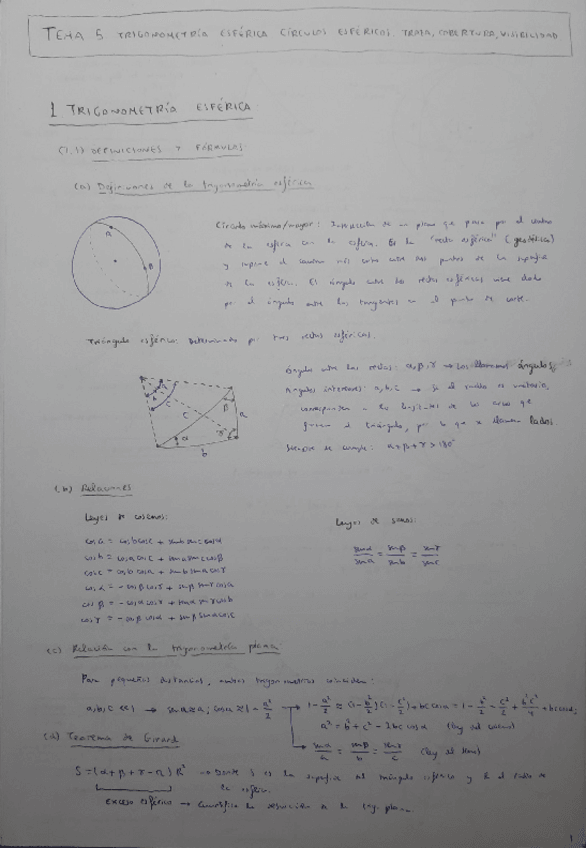 TEMA 5 TRIGONOMETRÍA ESFÉRICA CÍRCULOS ESFÉRICOS. TRAZA, COBERTURA, VISIBILIDAD
1 TRIGONOMETRÍA ESFÉRICA
(1.1) DEFINICIONES Y FÓRMULAS
(a) Definiciones de la trigonometría esférica
Círculo máximo/mayor: Intersección de un plano que pasa por el centro
de la esfera con la esfera. Es la "recta esférica" (geodésica)
y supone el camino más corto entre dos puntos de la superficie
de la esfera. El ángulo entre dos rectas esféricas viene dado
por el ángulo entre las tangentes en el punto de corte.
A
B
Triángulo esférico: Determinado por tres rectas esféricas.
Ángulos entre las rectas: α, β, γ → Los llamamos ángulos
Ángulos interiores: a, b, c → Si el radio es unitario,
corresponden a las longitudes de los arcos que
forman el triángulo, por lo que se llaman lados.
Siempre se cumple: α+β+γ > 180°
c
α
β
γ
a
b
(b) Relaciones
Leyes de cosenos:
Leyes de senos:
cos a = cos b cos c + sin b sin c cos α
cos b = cos a cos c + sin a sin c cos β
cos c = cos b cos a + sin b sin a cos γ
cos α = -cos β cos γ + sin β sin γ cos a
cos β = -cos α cos γ + sin α sin γ cos b
cos γ = -cos β cos α + sin β sin α cos c
sin α / sin a = sin β / sin b = sin γ / sin c
(c) Relación con la trigonometría plana:
Para pequeñas distancias, ambas trigonometrías coinciden:
a, b, c << → sin a ≈ a; cos a ≈ 1 - a²/2 → 1 - a²/2 ≈ (1 - b²/2)(1 - c²/2) + bc cos α = 1 - b²/2 - c²/2 + b²c²/4 + bc cos α;
a² = b² + c² - 2bc cos α (ley del coseno)
sin α / a = sin β / b = sin γ / c (ley del seno)
(d) Teorema de Girard
S = (α + β + γ - π) R² → Donde S es la superficie del triángulo esférico y R el radio de
la esfera.
exceso esférico → Cuantifica la desviación a la trig. plana.
1